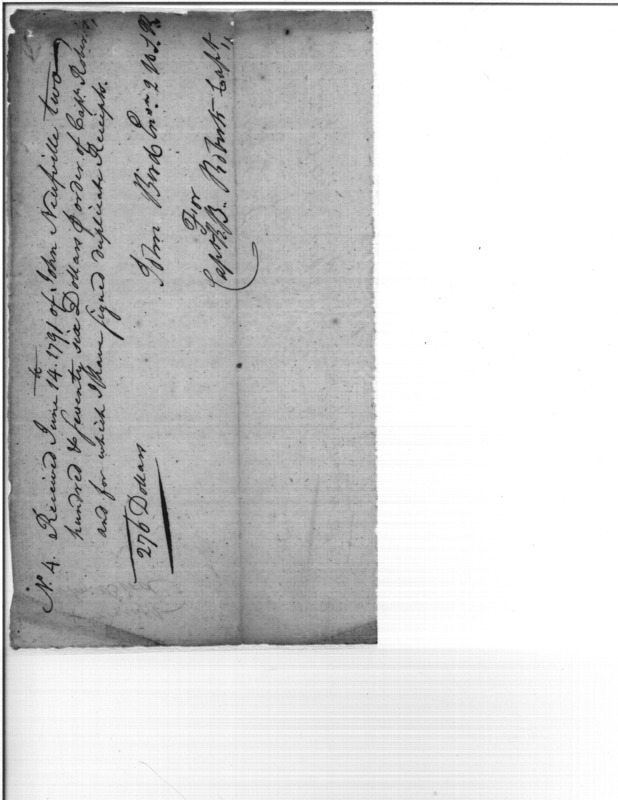 No. 4. Received June 14th 1791 of John Neufville two
hundred & seventy six Dollars order of Capt. Roberts,
and for which I have signed duplicate Receipts.
276 Dollars
John Bird Ensn. 2 U.S.R.
For
Capt. R. B. Roberts Capt,,